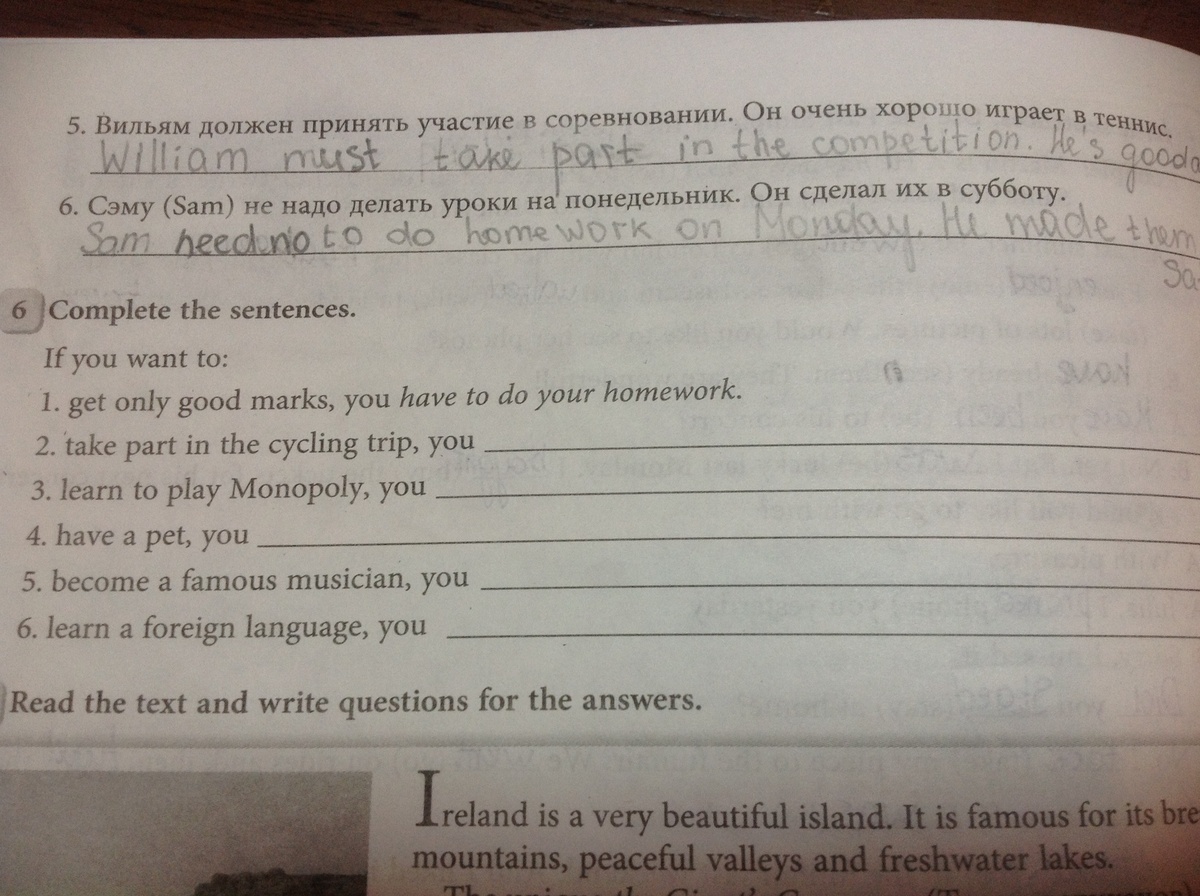 5. Вильям должен принять участие в соревновании. Он очень хорошо играет в теннис.
William must take part in the competition. He's good
6. Сэму (Sam) не надо делать уроки на понедельник. Он сделал их в субботу.
Sam need no to do homework on Monday. He made them
Sa
6 Complete the sentences.
If you want to:
1. get only good marks, you have to do your homework.
2. take part in the cycling trip, you
3. learn to play Monopoly, you
4. have a pet, you
5. become a famous musician, you
6. learn a foreign language, you
Read the text and write questions for the answers.
Ireland is a very beautiful island. It is famous for its bre
mountains, peaceful valleys and freshwater lakes.